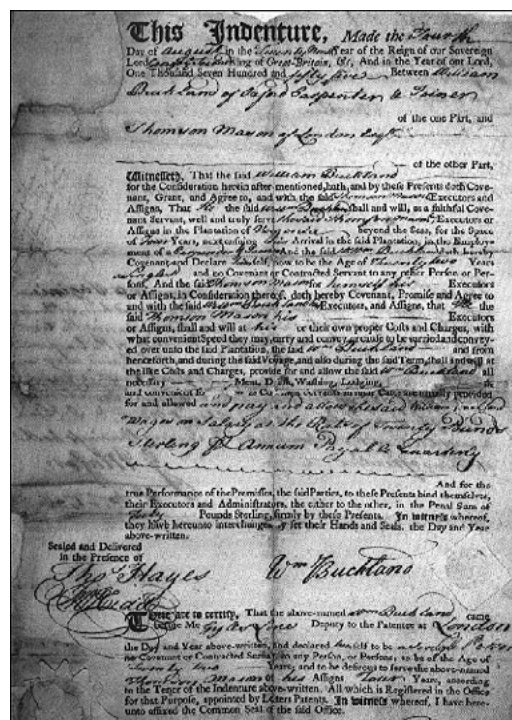 This Indenture, Made the Fourth
Day of August in the Twenty Ninth Year of the Reign of our Sovereign
Lord King of Great-Britain, &c. And in the Year of our Lord,
One Thousand Seven Hundred and fifty five Between William
Buckland of Oxford Carpenter & Joiner
of the one Part, and
Thomson Mason of London Esqr.
of the other Part,
Witnesseth, That the said William Buckland
for the Consideration herein after mentioned, hath, and by these Presents doth Cove-
nant, Grant, and Agree to, and with the said Thomson Mason Executors and
Assigns, That He the said Wm Buckland shall and will, as a faithful Cove-
nant Servant, well and truly serve Executors or
Assigns in the Plantation of Virginia beyond the Seas, for the Space
of Four Years, next ensuing his Arrival in the said Plantation, in the Employ-
ment of a And the said Wm Buckland doth hereby
Covenant and Declare himself, now to be the Age of Twenty two Years
and no Covenant or Contracted Servant to any other Person or Per-
sons, And the said Thomson Mason for himself his Executors
or Assigns, in Consideration thereof, doth hereby Covenant, Promise and Agree to
and with the said Wm Buckland his Executors, and Assigns, that He the
said Thomson Mason his Executors
or Assigns, shall and will at his or their own proper Costs and Charges, with
what convenient Speed they may, carry and convey, or cause to be carried and convey-
ed over unto the said Plantation, the said Wm Buckland and from
henceforth, and during the said Voyage, and also during the said Term, shall and will at
the like Costs and Charges, provide for and allow the said Wm Buckland all
necessary Meat, Drink, Washing, Lodging,
and convenient for as Covenant Servants in such Cases are usually provided
for and allowed and pay and allow the said William Buckland
Wages or Salary at the Rate of Twenty Pounds
Sterling Pr Annum Payable Quarterly
And for the
true Performance of the Premisses, the said Parties, to these Presents bind themselves,
their Executors and Administrators, the either to the other, in the Penal Sum of
Forty Pounds Sterling, firmly by these Presents. In witness whereof,
they have hereunto interchangeably set their Hands and Seals, the Day and Year
above-written.
Sealed and Delivered
in the Presence of
Tho Hayes
Wm Buckland
These are to certify, That the above-named Wm Buckland came
before Me Deputy to the Patentee at London
the Day and Year above-written, and declared himself to be a
no Covenant or Contracted Servant to any Person, or Persons, to be of the Age of
Twenty two Years; and to be desirous to serve the above-named
Thomson Mason or his Assigns Four Years, according
to the Tenor of the Indenture above-written. All which is Registered in the Office
for that Purpose, appointed by Letters Patents. In witness whereof, I have here-
unto affixed the Common Seal of the said Office.